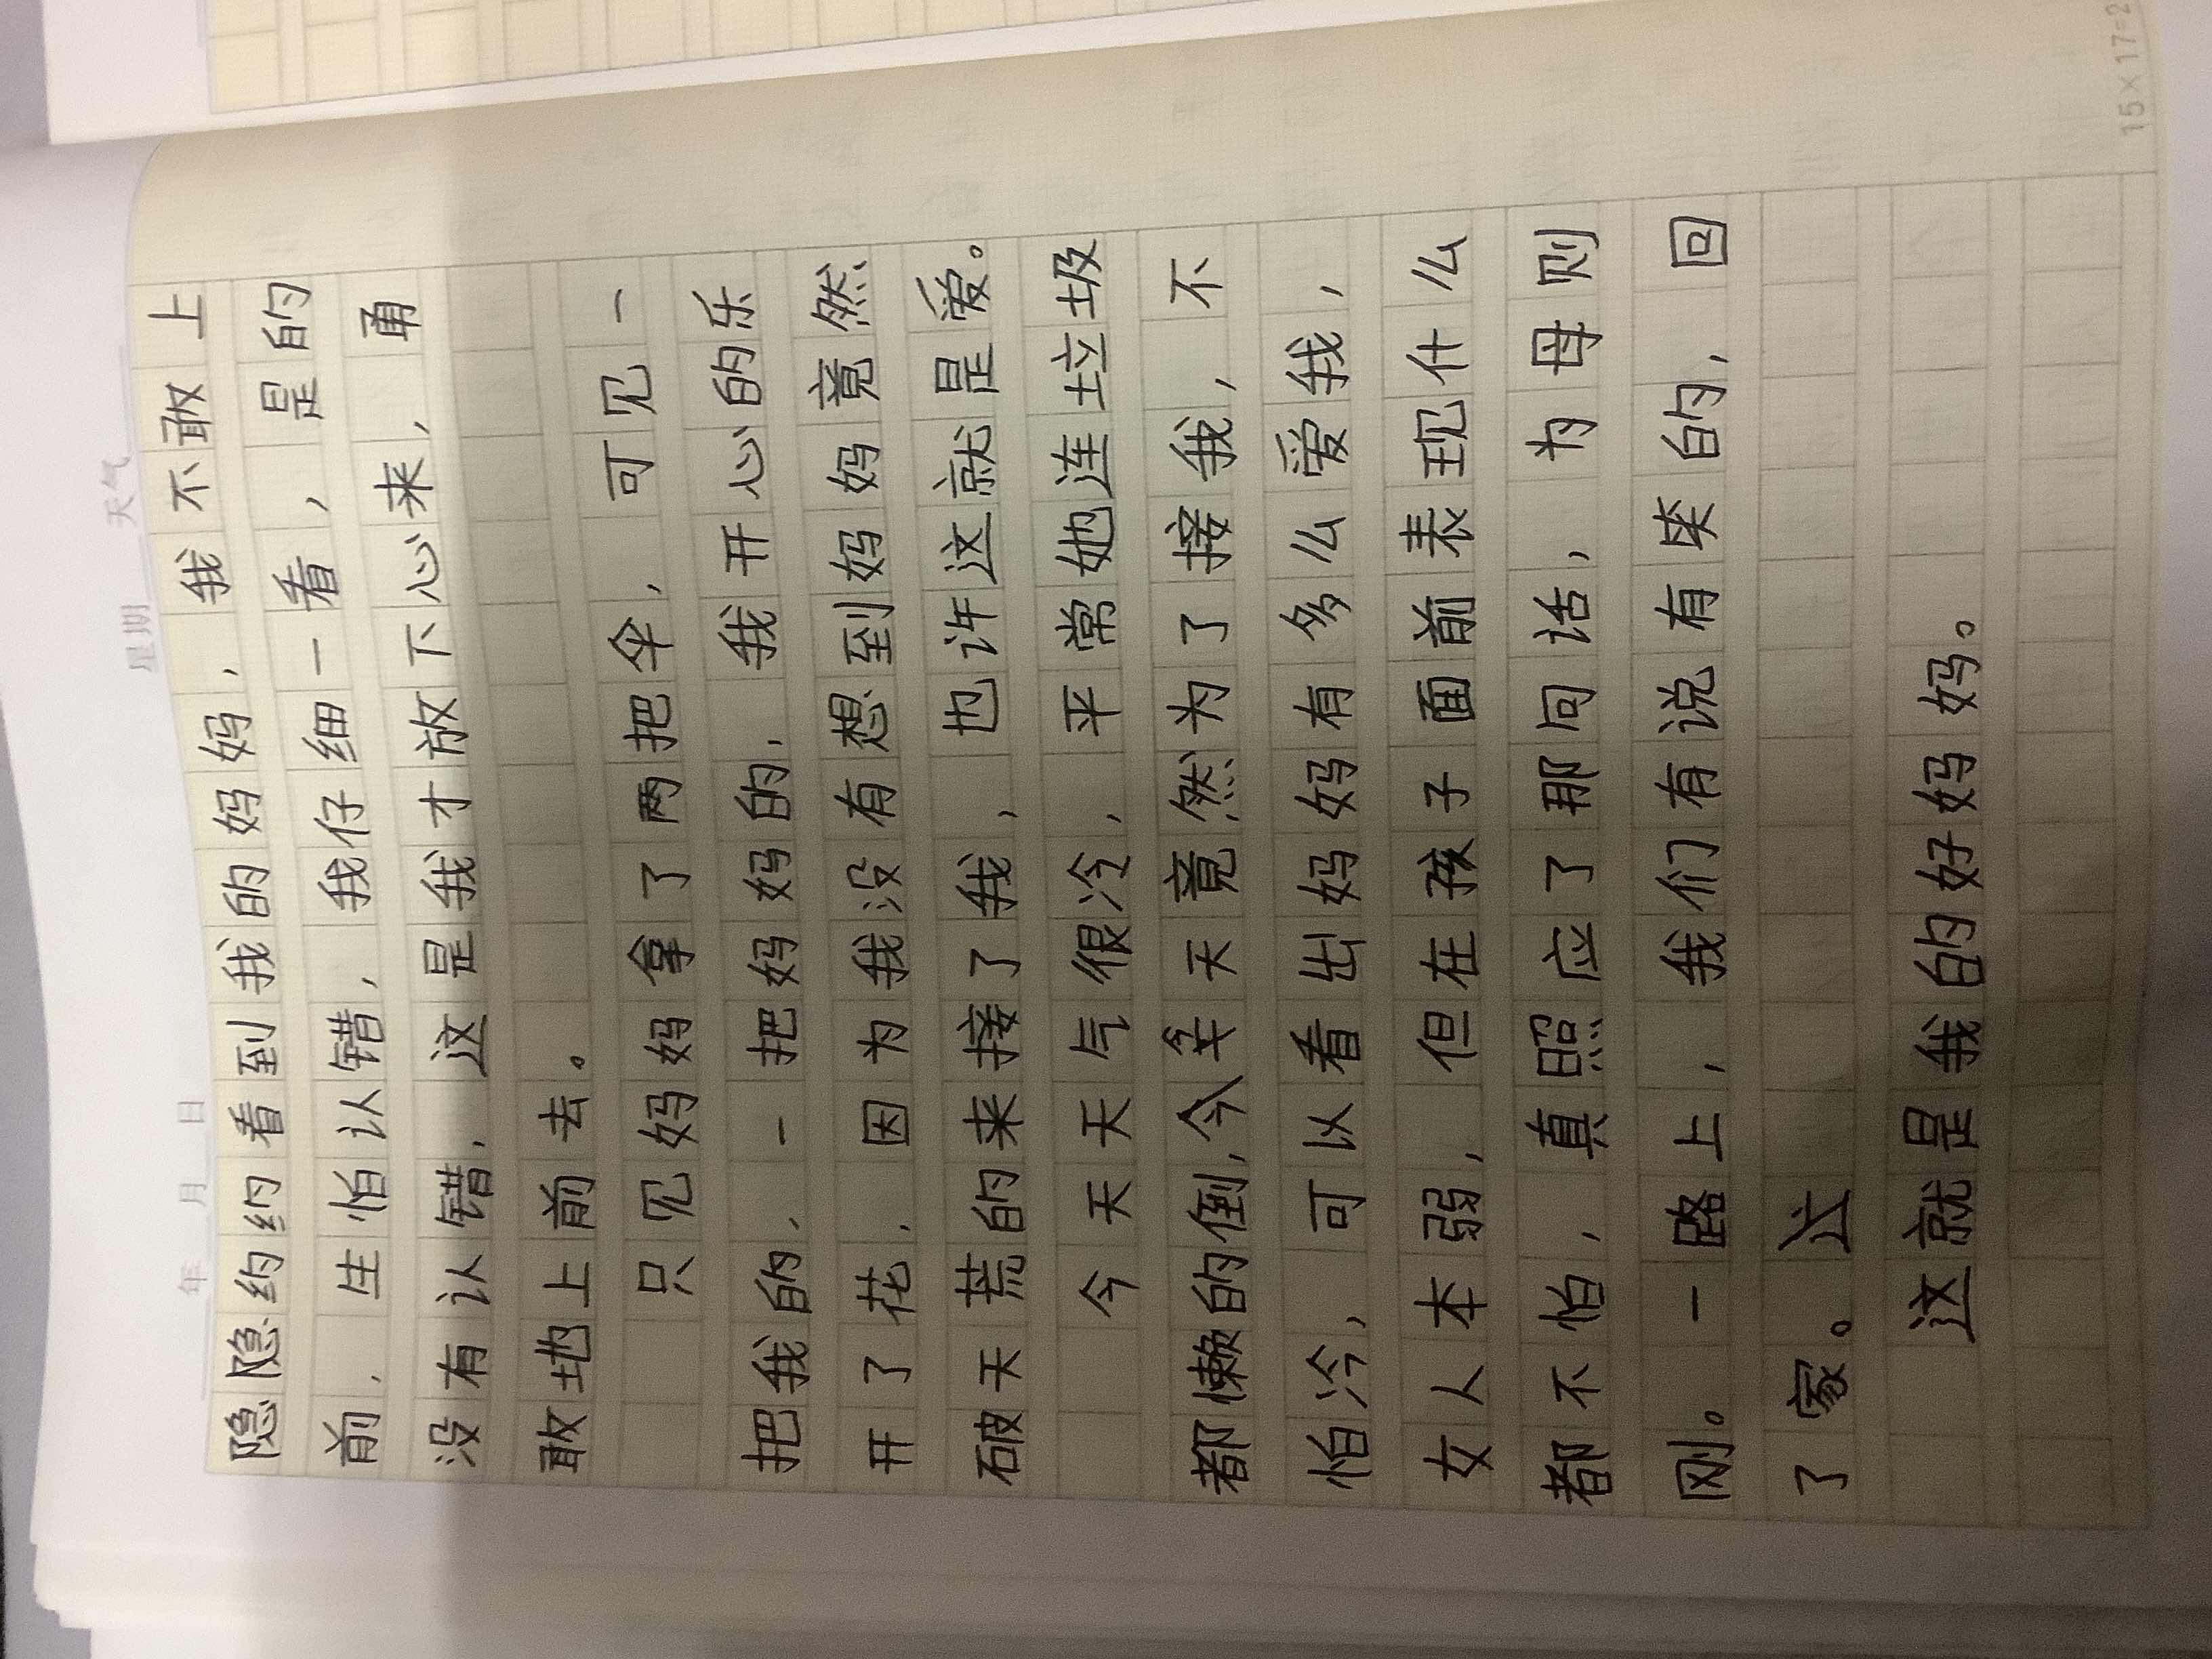 年 月 日 星期 天气
隐隐约约看到我的妈妈，我不敢上
前，生怕认错，我仔细一看，是的
没有认错，这是我才放下心来，勇
敢地上前去。
只见妈妈拿了两把伞，可见一
把我的，一把妈妈的，我开心的乐
开了花，因为我没有想到妈妈竟然
破天荒的来接了我，也许这就是爱。
今天天气很冷，平常她连垃圾
都懒的倒，今天竟然为了接我，不
怕冷，可以看出妈妈有多么爱我，
女人本弱，但在孩子面前表现什么
都不怕，真照应了那句话，为母则
刚。一路上，我们有说有笑的，回
了家。
这就是我的好妈妈。
15×17=2